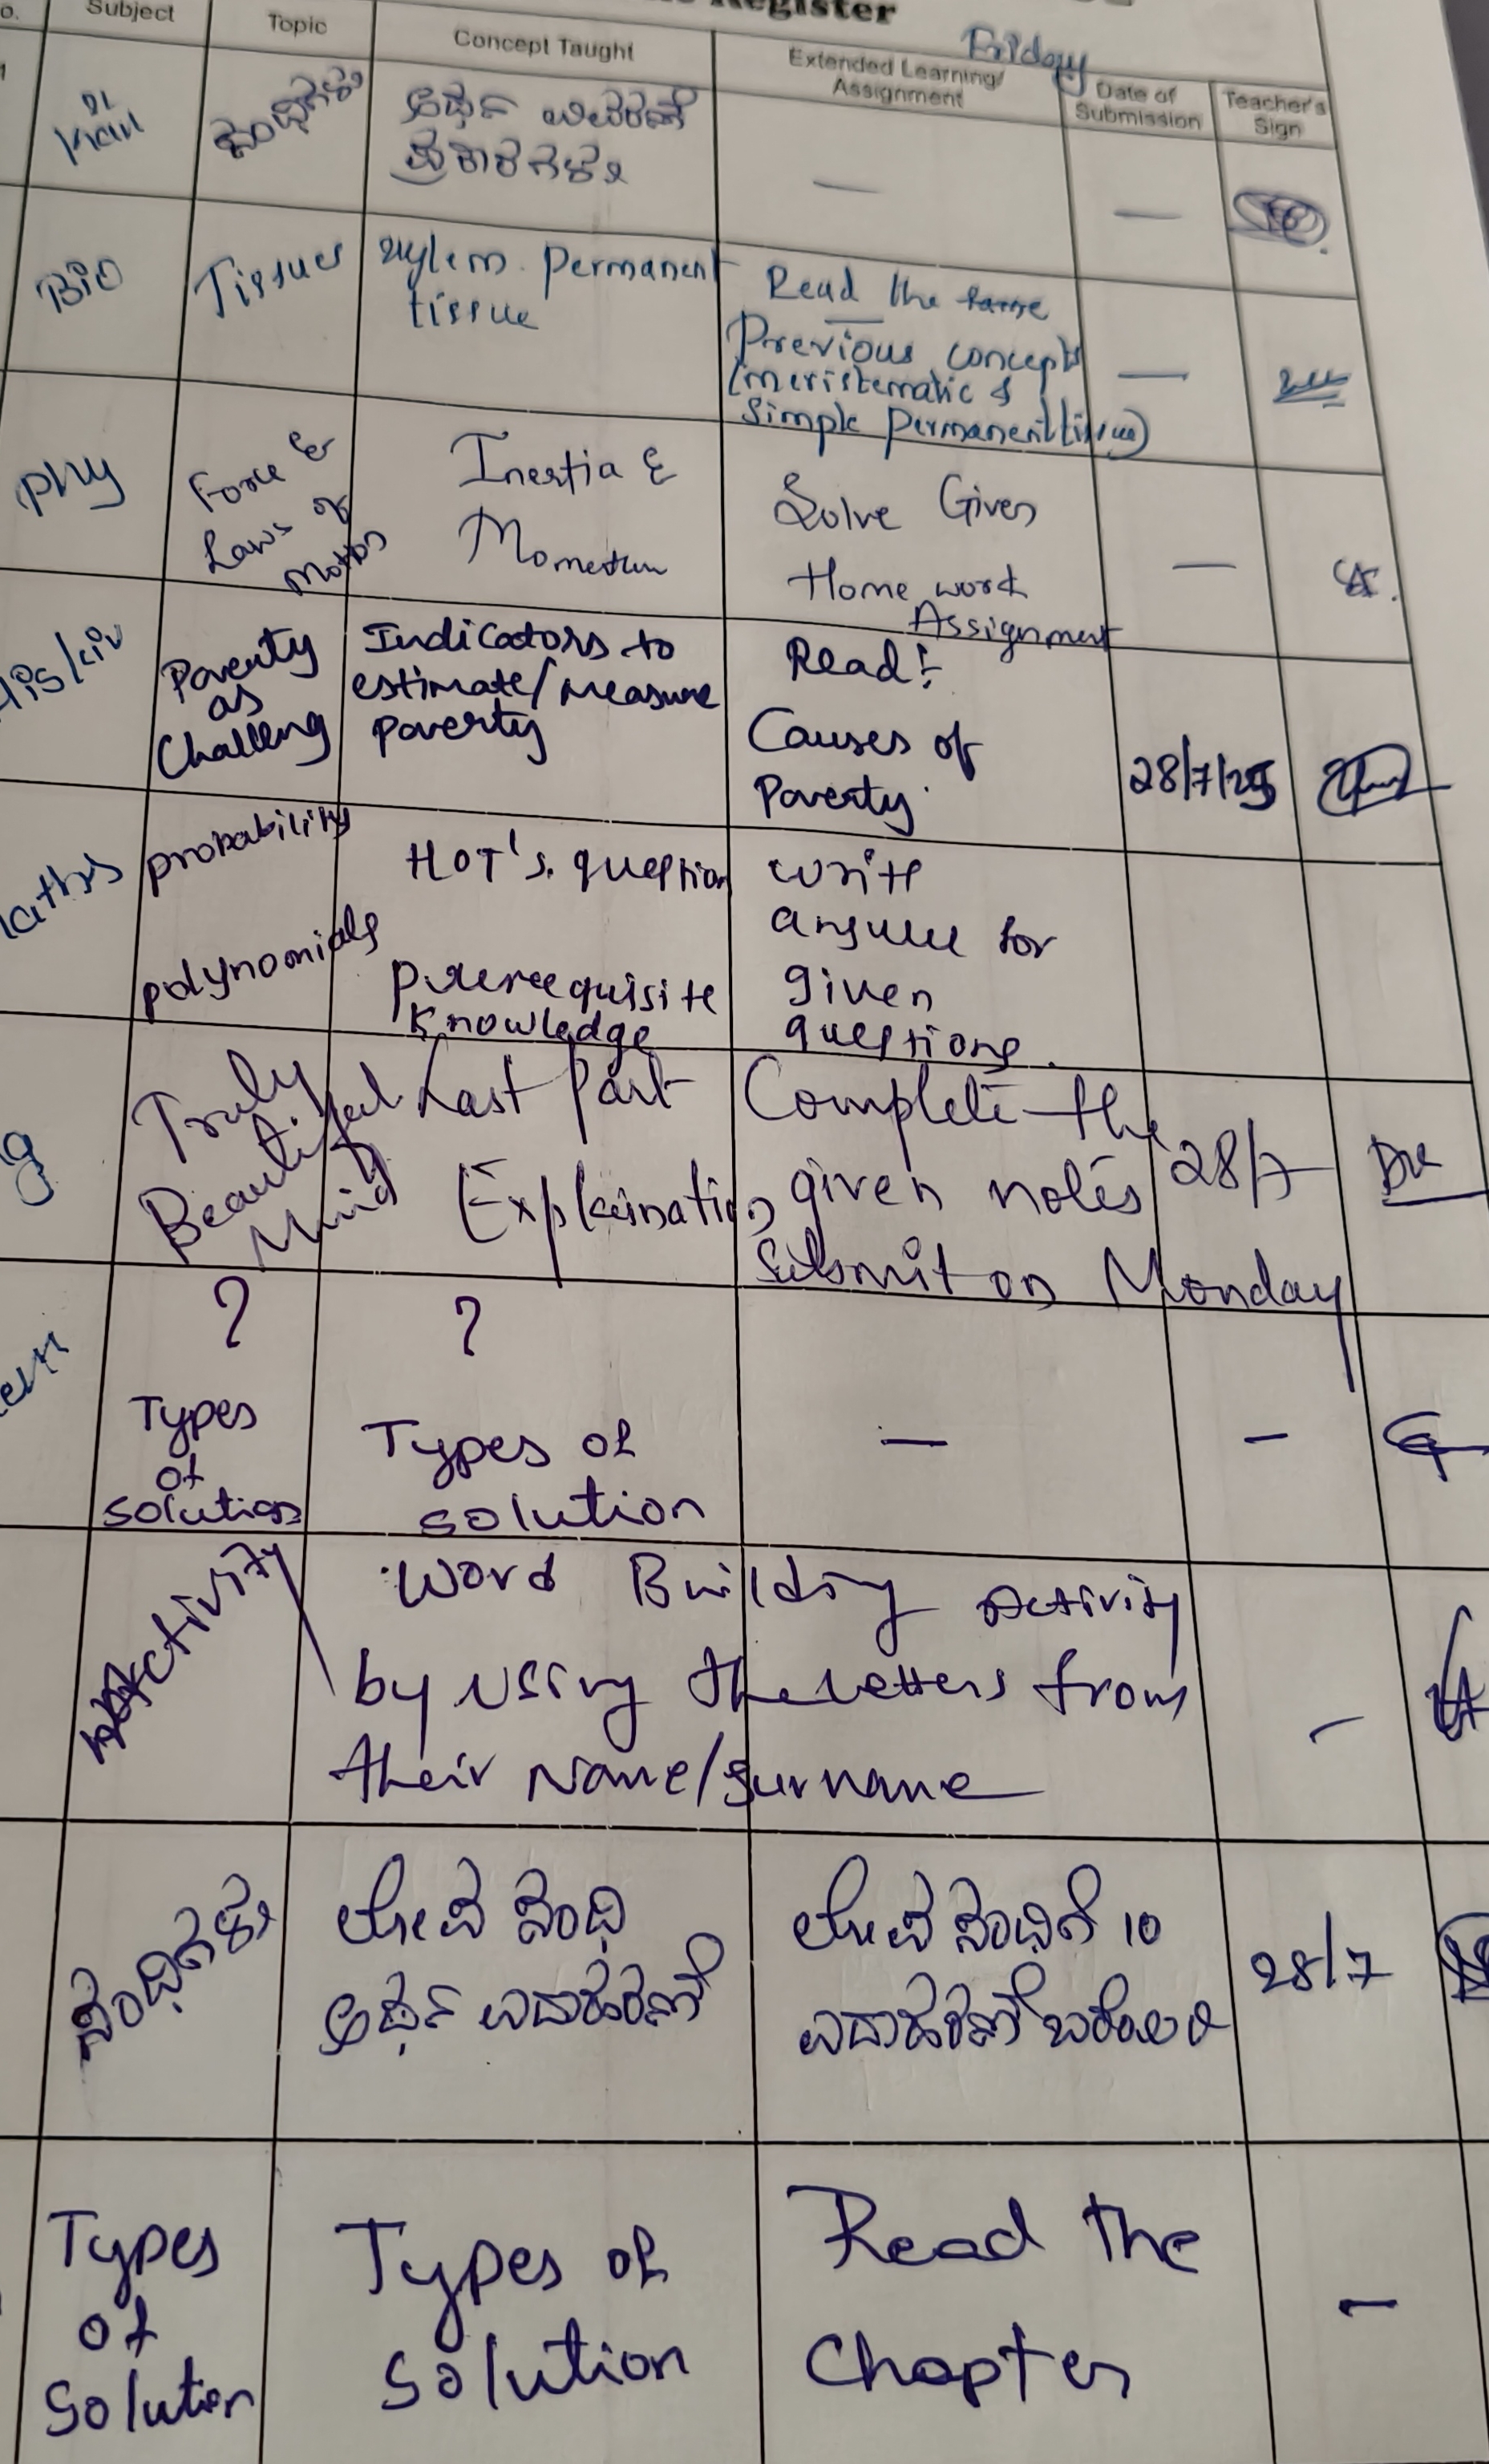 Register
Friday
Subject
Topic
Concept Taught
Extended Learning/
Assignment
Date of
Submission
Teacher's
Sign
Kan
ಸಂಧಿಗಳು
ಅರ್ಥ ವಿವರಣೆ
ಪ್ರಕಾರಗಳು
—
—
Bio
Tissues
xylem. permanent
tissue
Read the same
Previous concepts
(meristematic &
Simple permanent tissue)
—
phy
Force &
Laws of
Motion
Inertia &
Momentum
Solve Given
Home work
Assignment
—
His/civ
Poverty
as
Challeng
Indicators to
estimate/measure
poverty
Read :-
Causes of
Poverty.
28/7/25
probability
polynomials
HOT's. question
prerequisite
knowledge
write
answer for
given
questions.
Truly
Beautiful
Mind
Last Part
Explaination
Complete the
given notes
Submit on Monday
28/7
?
?
Types
of
solution
Types of
solution
—
—
Activity
Word Building Activity
by using the letters from
their Name/surname
—
ಸಂಧಿಗಳು
ಲೋಪ ಸಂಧಿ
ಅರ್ಥ ಉದಾಹರಣೆ
ಲೋಪ ಸಂಧಿಗೆ 10
ಉದಾಹರಣೆ ಬರೆಯಿರಿ
28/7
Types
of
Solution
Types of
Solution
Read the
Chapter
—